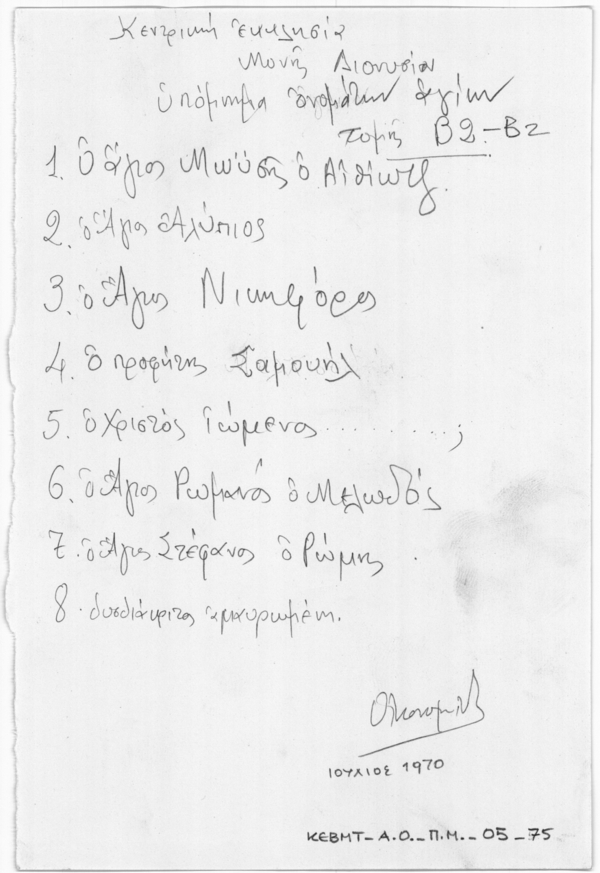 Κεντρική ἐκκλησία
Μονῆς Διονυσίου
ὑπόμνημα ὀνομάτων ἁγίων
τομῆς Β2-Β2
1. Ὁ ἅγιος Μωϋσῆς ὁ Αἰθίωψ.
2. ὁ Ἅγιος Ἀλύπιος
3. ὁ Ἅγιος Νικηφόρος
4. ὁ προφήτης Σαμουήλ
5. ὁ Χριστός ἰώμενος ..........;
6. ὁ Ἅγιος Ρωμανός ὁ Μελωδός
7. ὁ Ἅγιος Στέφανος ὁ Ρώμης .
8. δυσδιάκριτος ἀμαυρωμένη.
Οἰκονομίδης
ΙΟΥΛΙΟΣ 1970
ΚΕΒΜΤ_Α.Ο._Π.Μ._05_75